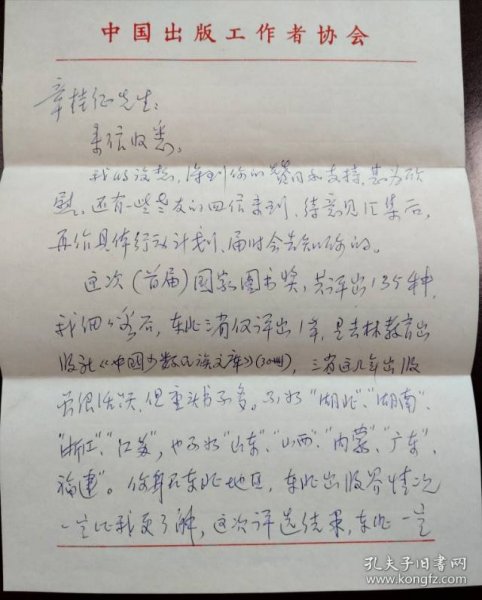 中国出版工作者协会
章桂征先生：
来信收悉。
我的设想，得到你的赞同和支持，甚为欣
慰。还有一些老友的回信未到，待意见汇集后，
再作具体行动计划，届时会告知你的。
这次（首届）国家图书奖，共评出135种，
我细阅后，东北三省仅评出1羊，是吉林教育出
版社《中国少数民族文库》(30册)，三省这几年出版
虽很活跃，但重头书不多。不如“湖北”、“湖南”、
“浙江”、“江苏”，也不如“山东”、“山西”、“内蒙”、“广东”、
福建”。你身在东北地区，东北出版界情况
一定比我更了解，这次评选结果，东北一定
孔夫子旧书网
www.kongfz.com